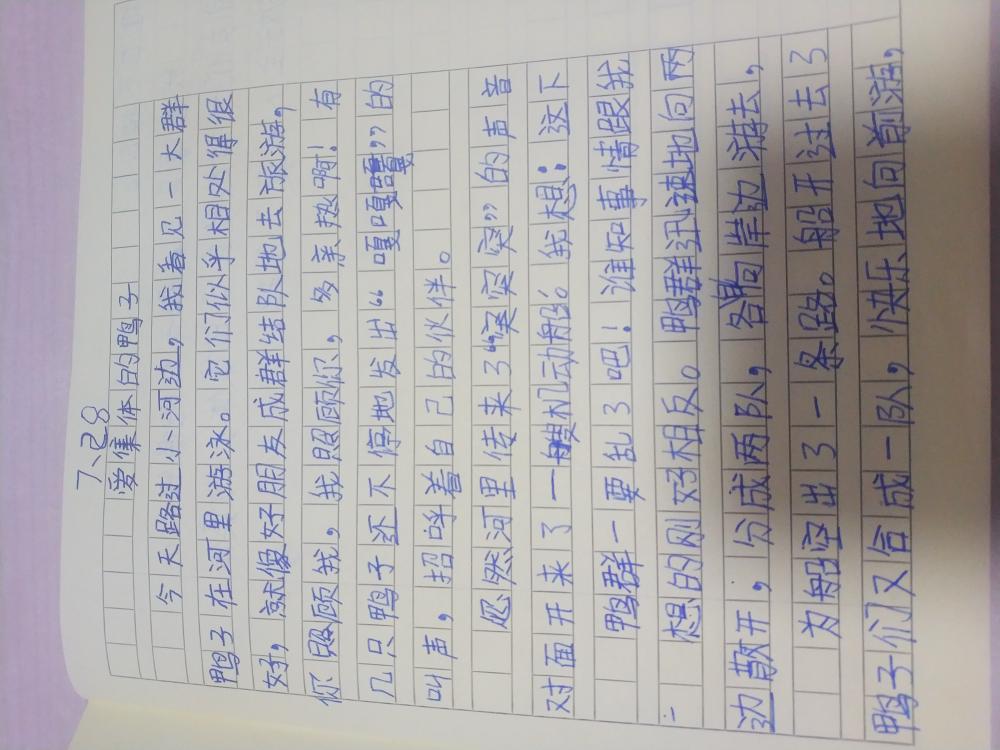 7、28
爱集体的鸭子
今天路过小河边，我看见一大群
鸭子在河里游泳。它们似乎相处得很
好，就像好朋友成群结队地去旅游，
你照顾我，我照顾你，多亲热啊！有
几只鸭子还不停地发出“嘎嘎嘎嘎”的
叫声，招呼着自己的伙伴。
忽然河里传来了“突突突”的声音
对面开来了一艘机动船。我想：这下
鸭群一要乱了吧！谁知事情跟我
想的刚好相反。鸭群迅速地向两
边散开，分成两队，各向岸边游去，
为船空出了一条路。船开过去了
鸭子们又合成一队，快乐地向前游，